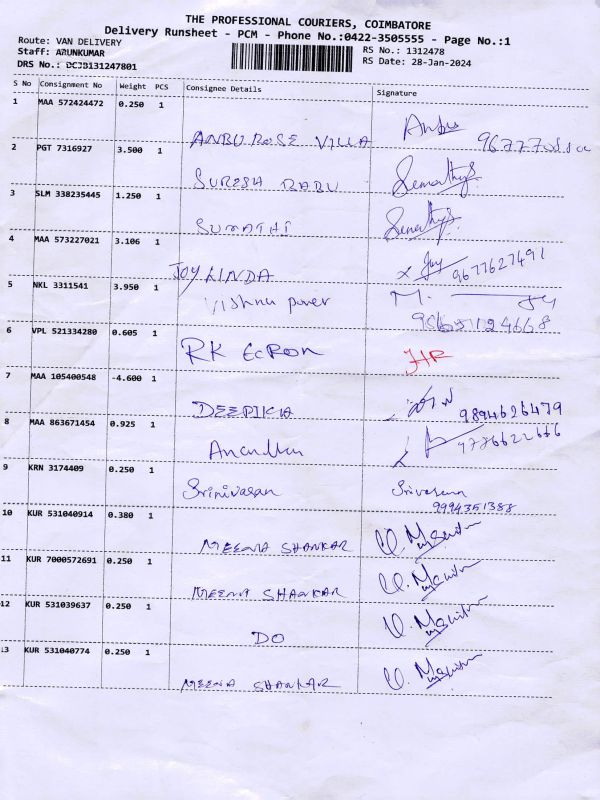 THE PROFESSIONAL COURIERS, COIMBATORE
Delivery Runsheet - PCM - Phone No.:0422-3505555 - Page No.:1
Route: VAN DELIVERY RS No.: 1312478
Staff: ARUNKUMAR RS Date: 28-Jan-2024
DRS No.: DCJB131247801
S No Consignment No Weight PCS Consignee Details Signature
1 MAA 572424472 0.250 1
ANBU ROSE VILLA Anbu
2 PGT 7316927 3.500 1
SURESH BABU
3 SLM 338235445 1.250 1
SUMATHI
4 MAA 573227021 3.106 1
JOY LINDA x Joy 9677627491
5 NKL 3311541 3.950 1
Vishnu power
6 VPL 521334280 0.605 1
RK
7 MAA 105400548 -4.600 1
DEEPIKA 9894626479
8 MAA 863671454 0.925 1
9 KRN 3174409 0.250 1
Srinivasan
9994351388
10 KUR 531040914 0.380 1
MEENA SHANKAR
11 KUR 7000572691 0.250 1
MEENA SHANKAR
12 KUR 531039637 0.250 1
DO
13 KUR 531040774 0.250 1
MEENA SHANKAR